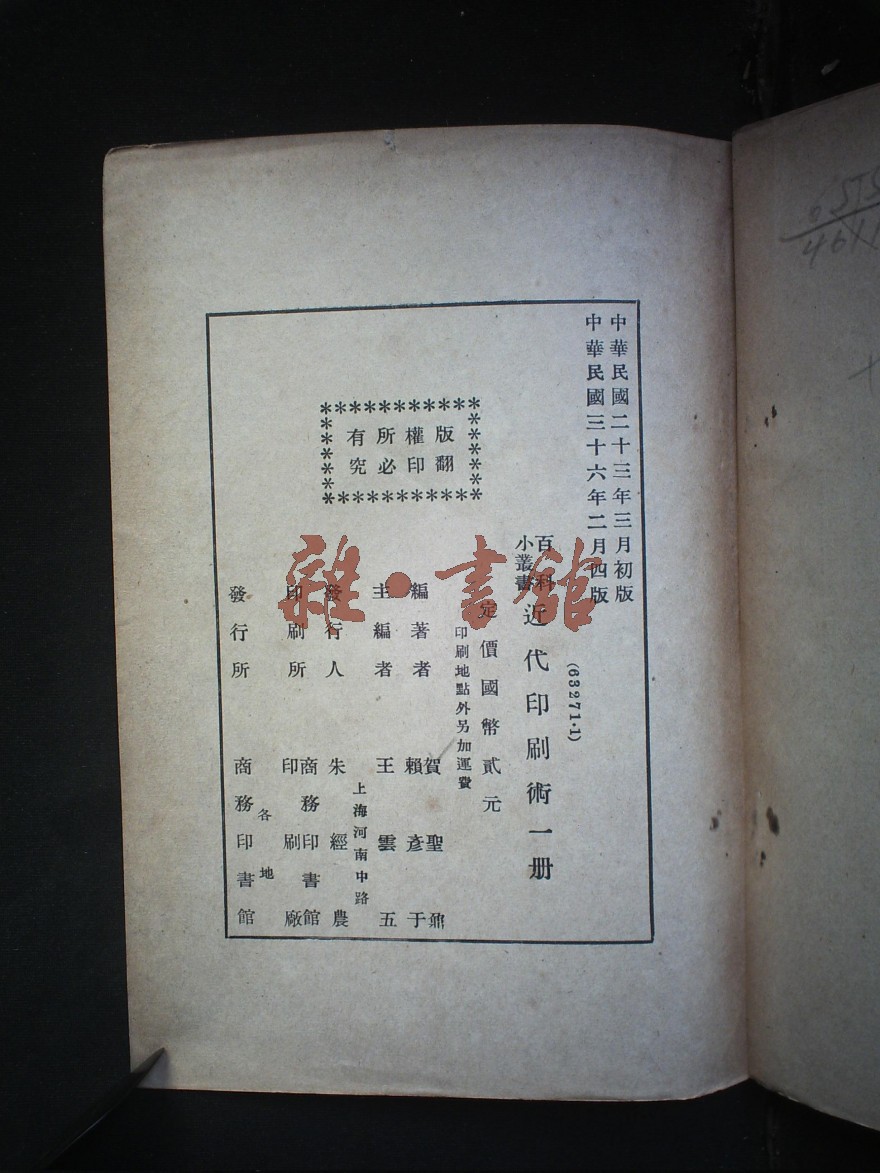 中華民國二十三年三月初版
中華民國三十六年二月四版
(63271·1)
百科
小叢書
近代印刷術一册
定價國幣貳元
印刷地點外另加運費
版權所有
翻印必究
編著者 賀聖鼐 賴彥于
主編者 王雲五
上海河南中路
發行人 朱經農
印刷所 商務印書館 印刷廠
各地
發行所 商務印書館
雜·書館